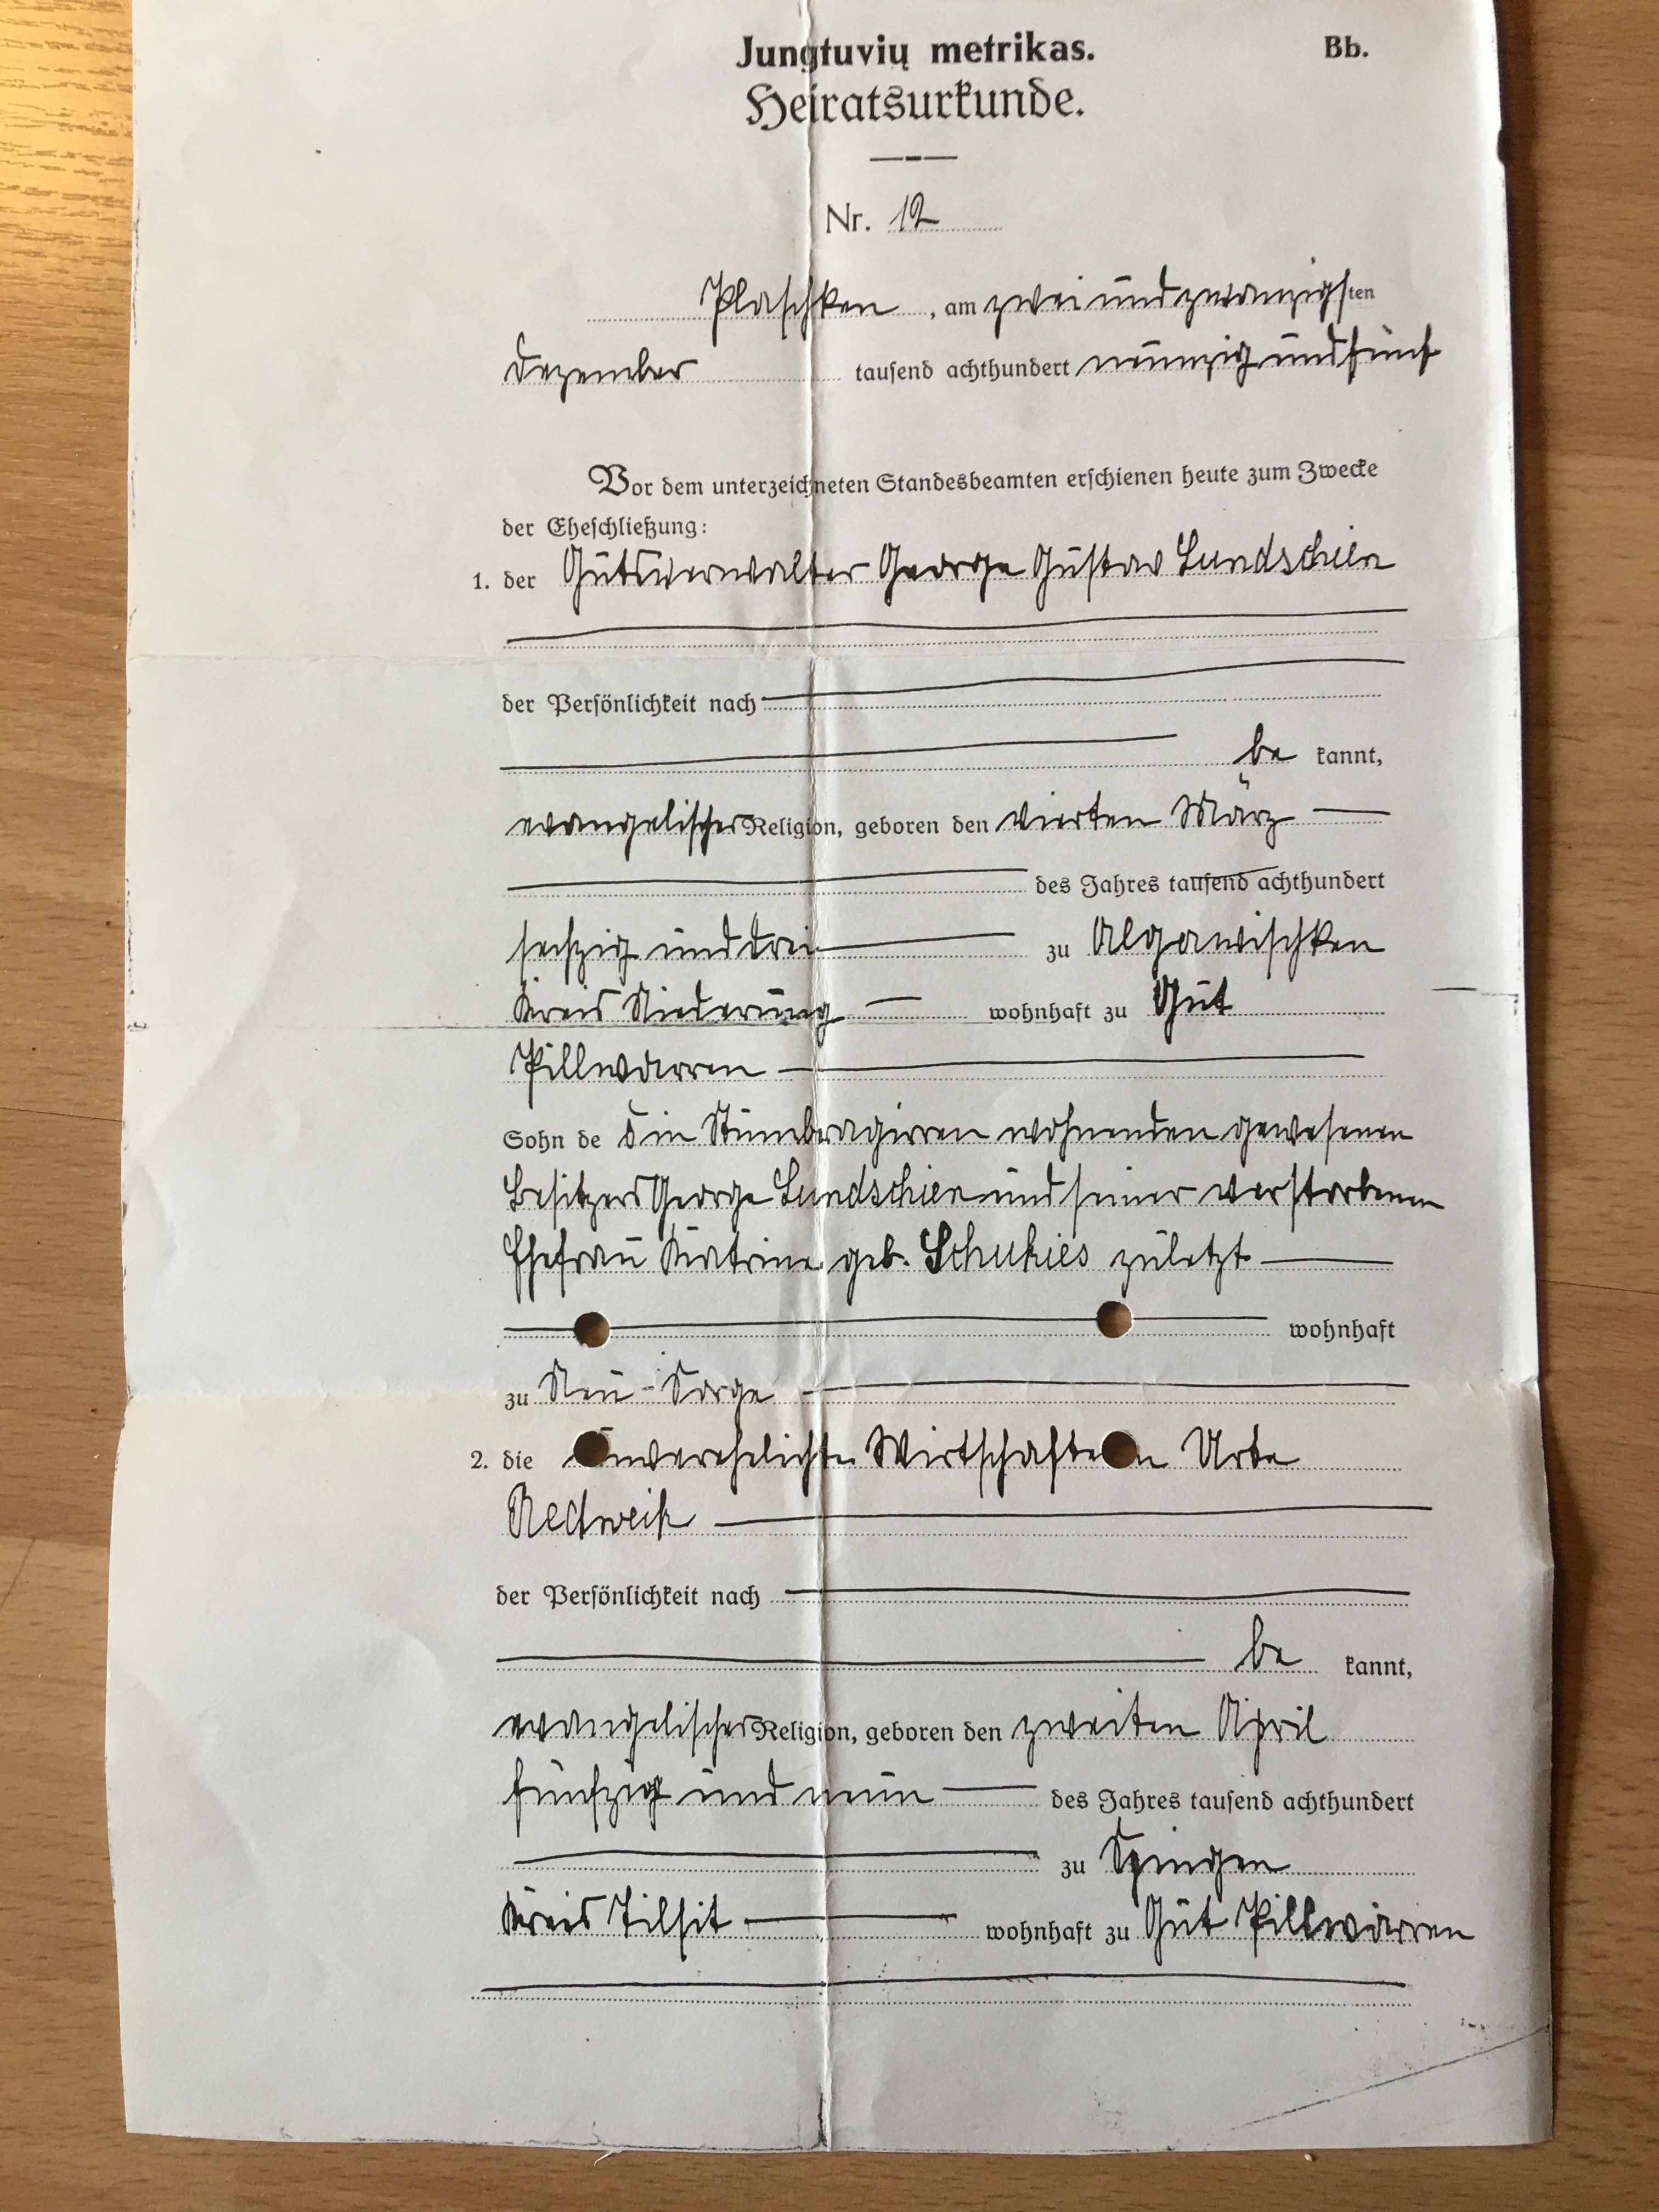 Jungtuvių metrikas. Bb.
Heiratsurkunde.
Nr. 12
Plaschken, am zwei und zwanzigsten
Dezember tausend achthundert neunzig und fünf
Vor dem unterzeichneten Standesbeamten erschienen heute zum Zwecke
der Eheschließung:
1. der Gutsverwalter George Gustav Lundschien
der Persönlichkeit nach
be kannt,
evangelischer Religion, geboren den vierten März
des Jahres tausend achthundert
sechzig und drei zu Algawischken
Kreis Niederung wohnhaft zu Gut
Pillwarren
Sohn de s in Stumbragirren wohnenden gewesenen
Besitzers George Lundschien und seiner verstorbenen
Ehefrau Katrine geb. Schukies zuletzt
wohnhaft
zu Neu-Sorge
2. die unverehelichte Urte
der Persönlichkeit nach
be kannt,
evangelischer Religion, geboren den zweiten April
fünfzig und neun des Jahres tausend achthundert
zu Spingen
Kreis Tilsit wohnhaft zu Gut Pillwarren